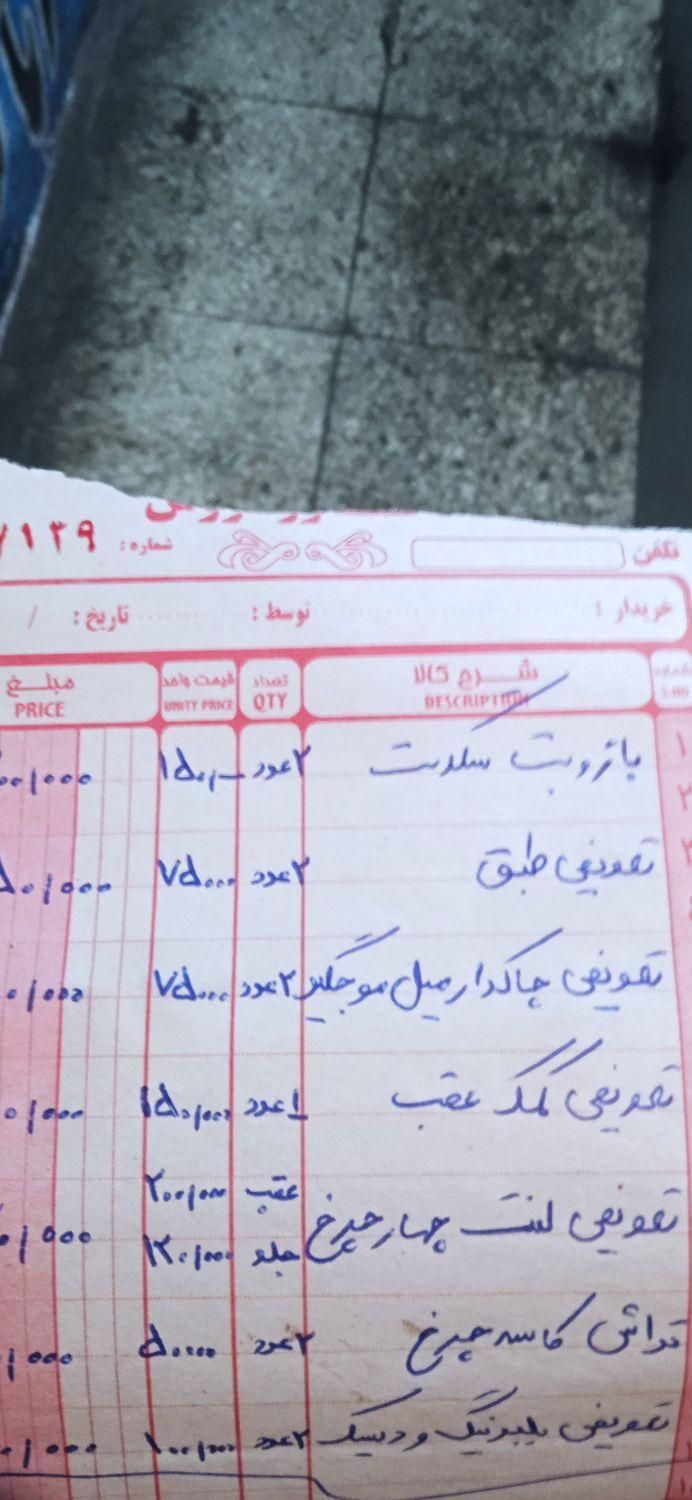 تلفن شماره: ۷۱۳۹
خریدار : توسط : تاریخ : /
شماره شرح کالا تعداد قیمت واحد مبلغ
DESCRIPTION QTY UNITY PRICE PRICE
۱ باز و بست سگدست ۲عدد ۱۵۰/- ۰۰/۰۰۰
۲
۳ تعویض طبق ۲عدد ۷۵۰۰۰ ۵۰/۰۰۰
تعویض چاکدار میل موجگیر ۲عدد ۷۵۰۰۰ ۰/۰۰۰
تعویض کمک عقب ۱عدد ۱۵۰/۰۰۰ ۰/۰۰۰
تعویض لنت چهار چرخ عقب ۲۰۰/۰۰۰
جلو ۱۲۰/۰۰۰ ۰/۰۰۰
تراش کاسه چرخ ۲عدد ۵۰۰۰۰ /۰۰۰
تعویض بلبرینگ و دیسک ۲عدد ۱۰۰/۰۰۰ ۰/۰۰۰